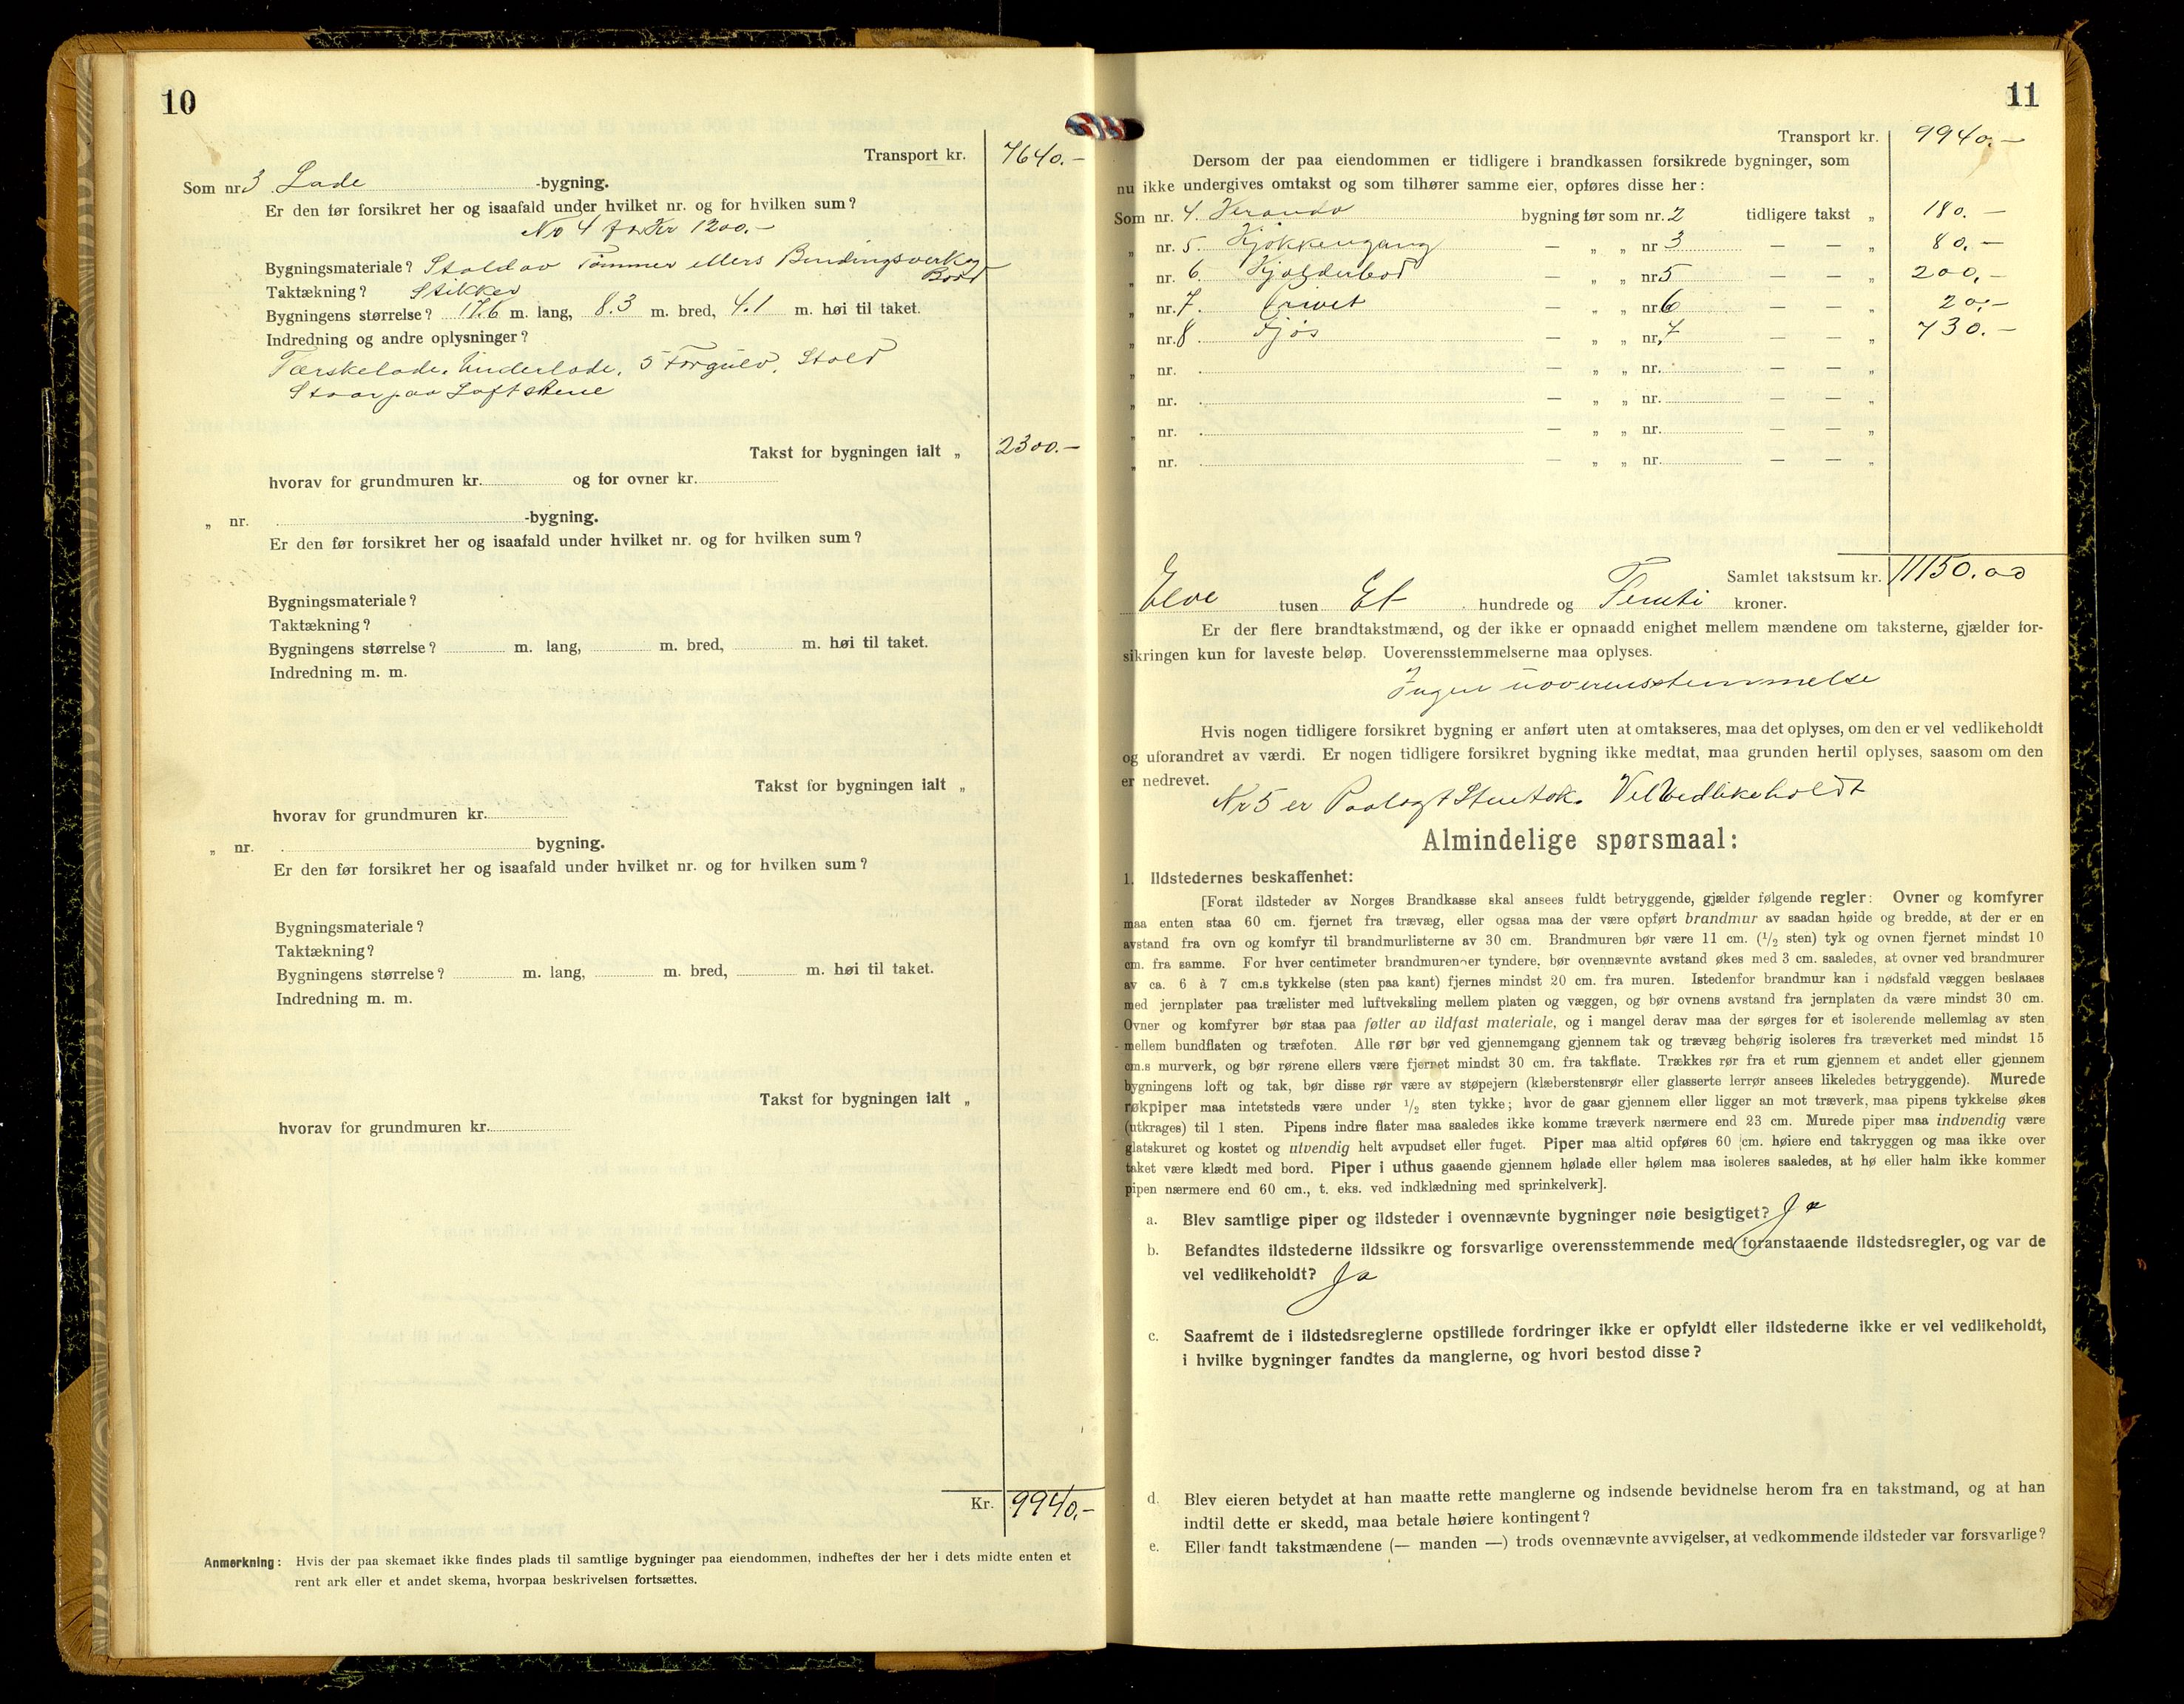 10
Transport kr. 7640.-
Som nr 3. Lade -bygning.
Er den før forsikret her og isaafald under hvilket nr. og for hvilken sum?
No 4 for Kr 1200.-
Bygningsmateriale? Stald av Tømmer ellers Bindingsverk og Bord
Taktækning? Stikker
Bygningens størrelse? 17.6 m. lang, 8.3 m. bred, 4.1 m. høi til taket.
Indredning og andre oplysninger?
Tærskelade. Underlade. 5 Forgulv. Stald
Staar paa Loftstene
Takst for bygningen ialt „ 2300.-
hvorav for grundmuren kr. og for ovner kr.
„ nr. -bygning.
Er den før forsikret her og isaafald under hvilket nr. og for hvilken sum?
Bygningsmateriale?
Taktækning?
Bygningens størrelse? m. lang, m. bred, m. høi til taket.
Indredning m. m.
Takst for bygningen ialt „
hvorav for grundmuren kr.
„ nr. bygning.
Er den før forsikret her og isaafald under hvilket nr. og for hvilken sum?
Bygningsmateriale?
Taktækning?
Bygningens størrelse? m. lang, m. bred, m. høi til taket.
Indredning m. m.
Takst for bygningen ialt „
hvorav for grundmuren kr.
Kr. 9940.-
Anmerkning: Hvis der paa skemaet ikke findes plads til samtlige bygninger paa eiendommen, indheftes der her i dets midte enten et
rent ark eller et andet skema, hvorpaa beskrivelsen fortsættes.
11
Transport kr. 9940.-
Dersom der paa eiendommen er tidligere i brandkassen forsikrede bygninger, som
nu ikke undergives omtakst og som tilhører samme eier, opføres disse her:
Som nr. 4. Veranda bygning før som nr. 2 tidligere takst „ 180.-
„ nr. 5. Kjøkkengang — „ „ nr 3 — — „ 80.-
„ nr. 6. Kjølderbod — „ „ nr 5 — — „ 200.-
„ nr. 7. Privet — „ „ nr. 6 — — „ 20.-
„ nr. 8. Fjøs — „ „ nr. 7 — — „ 730.-
„ nr. . — „ „ nr. — — „
„ nr. . — „ „ nr. — — „
„ nr. . — „ „ nr. — — „
„ nr. . — „ „ nr. — — „
Samlet takstsum kr. 11150.00
Elve tusen Et hundrede og Femti kroner.
Er der flere brandtakstmænd, og der ikke er opnaadd enighet mellem mændene om taksterne, gjælder for-
sikringen kun for laveste beløp. Uoverensstemmelserne maa oplyses.
Ingen uoverensstemmelse
Hvis nogen tidligere forsikret bygning er anført uten at omtakseres, maa det oplyses, om den er vel vedlikeholdt
og uforandret av værdi. Er nogen tidligere forsikret bygning ikke medtat, maa grunden hertil oplyses, saasom om den
er nedrevet.
Nr 5 er Paalagt Stentak. Vel Vedlikeholdt
Almindelige spørsmaal:
1. Ildstedernes beskaffenhet:
[Forat ildsteder av Norges Brandkasse skal ansees fuldt betryggende, gjælder følgende regler: Ovner og komfyrer
maa enten staa 60 cm. fjernet fra trævæg, eller ogsaa maa der være opført brandmur av saadan høide og bredde, at der er en
avstand fra ovn og komfyr til brandmurlisterne av 30 cm. Brandmuren bør være 11 cm. (1/2 sten) tyk og ovnen fjernet mindst 10
cm. fra samme. For hver centimeter brandmuren er tyndere, bør ovennævnte avstand økes med 3 cm. saaledes, at ovner ved brandmurer
av ca. 6 à 7 cm.s tykkelse (sten paa kant) fjernes mindst 20 cm. fra muren. Istedenfor brandmur kan i nødsfald væggen beslaaes
med jernplater paa trælister med luftveksling mellem platen og væggen, og bør ovnens avstand fra jernplaten da være mindst 30 cm.
Ovner og komfyrer bør staa paa føtter av ildfast materiale, og i mangel derav maa der sørges for et isolerende mellemlag av sten
mellem bundflaten og træfoten. Alle rør bør ved gjennemgang gjennem tak og trævæg behørig isoleres fra træverket med mindst 15
cm.s murverk, og bør rørene ellers være fjernet mindst 30 cm. fra takflate. Trækkes rør fra et rum gjennem et andet eller gjennem
bygningens loft og tak, bør disse rør være av støpejern (klæberstensrør eller glasserte lerrør ansees likeledes betryggende). Murede
røkpiper maa intetsteds være under 1/2 sten tykke; hvor de gaar gjennem eller ligger an mot træverk, maa pipens tykkelse økes
(utkrages) til 1 sten. Pipens indre flater maa saaledes ikke komme træverk nærmere end 23 cm. Murede piper maa indvendig være
glatskuret og kostet og utvendig helt avpudset eller fuget. Piper maa altid opføres 60 cm. høiere end takryggen og maa ikke over
taket være klædt med bord. Piper i uthus gaaende gjennem hølade eller hølem maa isoleres saaledes, at hø eller halm ikke kommer
pipen nærmere end 60 cm., t. eks. ved indklædning med sprinkelverk].
a. Blev samtlige piper og ildsteder i ovennævnte bygninger nøie besigtiget? Ja
b. Befandtes ildstederne ildssikre og forsvarlige overensstemmende med foranstaaende ildstedsregler, og var de
vel vedlikeholdt? Ja
c. Saafremt de i ildstedsreglerne opstillede fordringer ikke er opfyldt eller ildstederne ikke er vel vedlikeholdt,
i hvilke bygninger fandtes da manglerne, og hvori bestod disse?
d. Blev eieren betydet at han maatte rette manglerne og indsende bevidnelse herom fra en takstmand, og at han
indtil dette er skedd, maa betale høiere kontingent?
e. Eller fandt takstmændene (— manden —) trods ovennævnte avvigelser, at vedkommende ildsteder var forsvarlige?